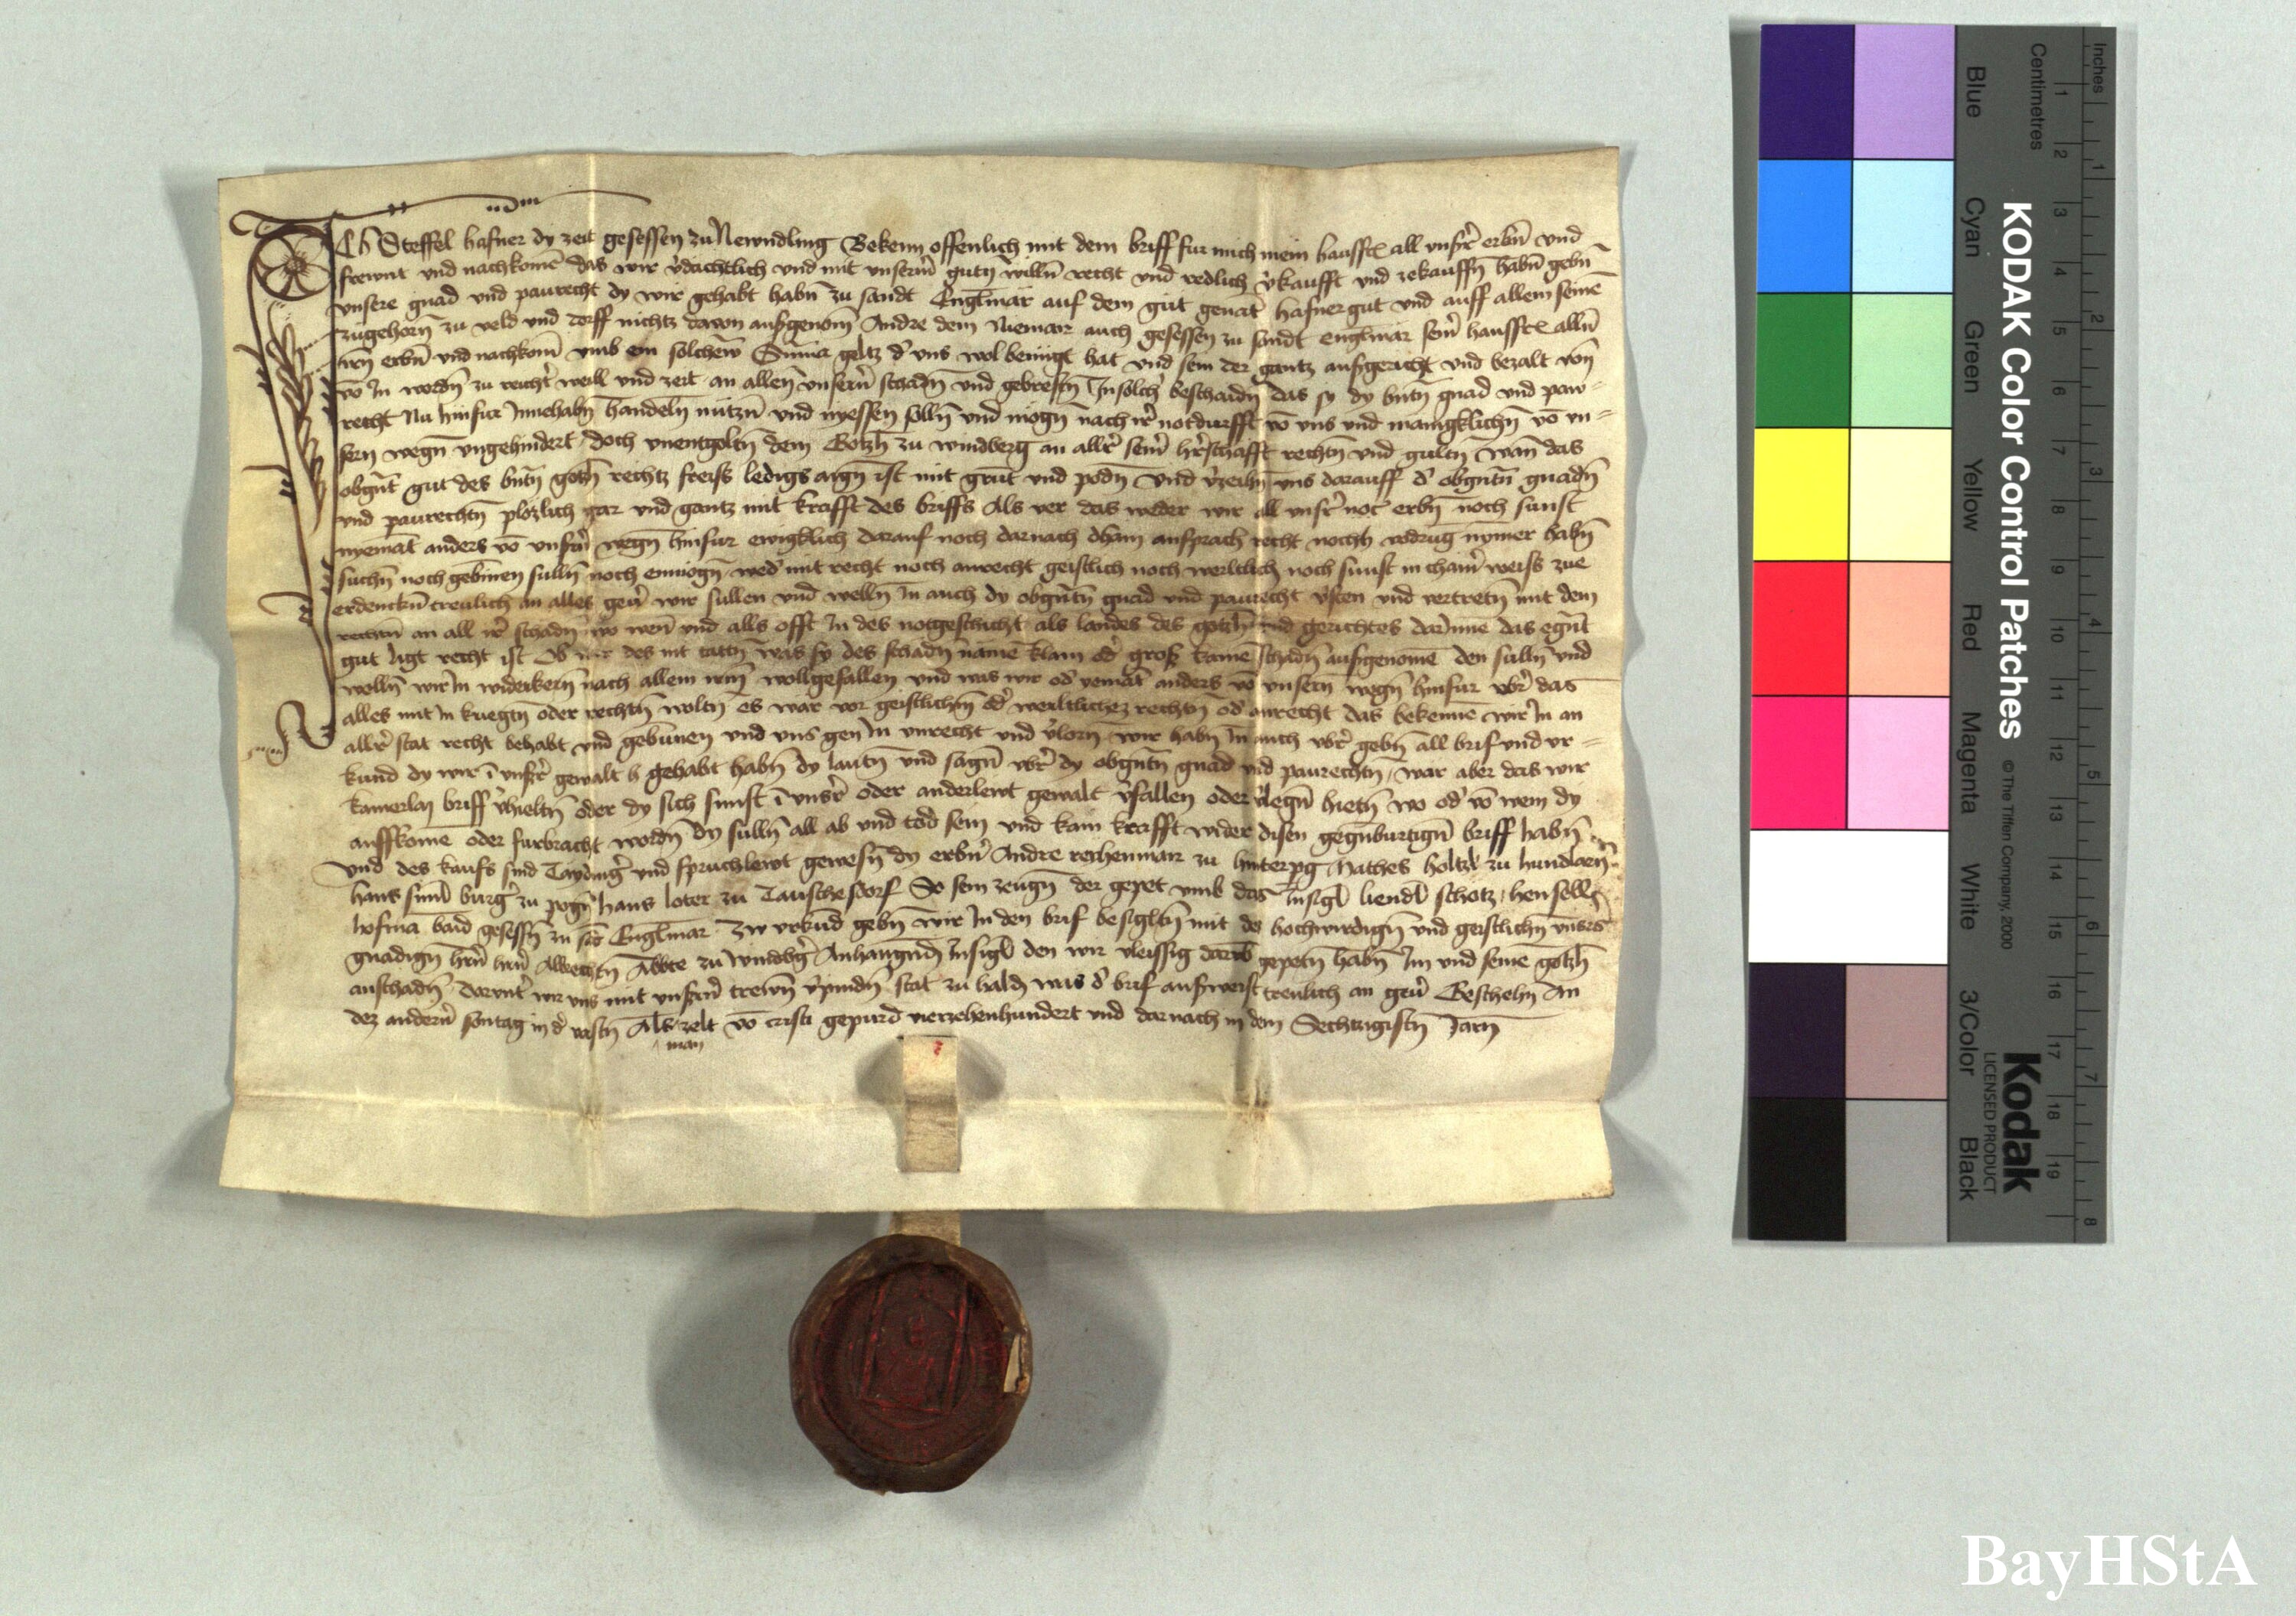 Ich Steffel hafner dy zeit gesessen zu Newndling Bekenn offenlich mit dem briff fur mich mein hausfr all unsr̄ erbn̄ vnd
frewnt vnd nachkomē das wir v̓dachtlich vnd mit vnserm̄ gutn̄ willn̄ recht vnd redlich v̓kaufft vnd zekauffn̄ habn̄ gebn̄
vnsere gnad vnd paurecht dy wir gehabt habn̄ zu sandt Englmar auf dem gut genāt hafnergut vnd auff allem seinē
zugehorn̄ zu veld vnd dorff nichtz davon ausgenom̄ Andre dem Niemair auch gesessen zu sandt englmar sein̄ hausfr alln̄
irn̄ erbn̄ vnd nachkom̄ vmb ein solchew Summa geltz d̓ vns wol benugt hat vnd sein der gantz ausgericht vnd bezalt von̄
vō In wordn̄ zu recht̓ weill vnd zeit an allen̄ vnsern̄ schadn̄ vnd gebrestn̄ In solch̓ beschaidn̄ das sy dy bntn̄ gnad vnd paw=
recht Nu hinfur Innehabn̄ handeln̄ nützn̄ vnd nyessen solln̄ vnd mogn̄ nach ir̓ notdurfft vō vns vnd mainigklichn̄ vō vn=
sern wegn̄ vngehindert doch vnentgoltn̄ dem Gotzh̄ zu windberg an allr̓ sein̄ hr̓schafft rechtn̄ vnd gultn̄ wan̄ das
obgn̄t gut des bntn̄ gotzh̄ rechtz freiss ledigs aign̄ ist mit grūt vnd podn̄ vnd v̓zeihn̄ vns darauff d̓ obgn̄tn̄ gnadn̄
vnd paurechtn̄ plozlich gar vnd gantz mit krafft des briffs Als ver das weder wir all vnsr̓ noc erbn̄ noch sunst
nyemāt anders vō vnsern̄ wegn̄ hinfur ewigklich darauf noch darnach dhain ansprach recht noch vodrūg nymer habn̄
suchn̄ noch gebinen sulln̄ noch enmogn̄ wed̓ mit recht noch anrecht geistlich noch werltlich noch sunst in chain̓ weiss zue
erdenckn̄ treulich an alles gev̓ wir sullen vnd welln̄ In auch dy obgn̄tn̄ gnad vnd paurecht v̓sten vnd vertretn̄ mit dem
rechtn̄ an all ir̓ schadn̄ wo wen̄ vnd alls offt In des notgeschicht als landes des gotzh̄ vnd gerichtes darInne das egn̄t
gut ligt recht ist Ob wir des nit tattn̄ was sy des schadn̄ namē klain od̓ gross kainē schadn̄ ausgenomē den sulln̄ vnd
wolln̄ wir In widerkern̄ nach allem irm̄ wollgefallen vnd was wir od̓ yemāt anders vō vnsern̄ wegn̄ hinfur vbr̓ das
alles mit In kriegtn̄ oder rechtn̄ woltn̄ es war vor geistlichn̄ od̓ werltlichez rechtn̄ od̓ anrecht das bekennē wir In an
allr̓ stat recht behabt vnd gebunnen vnd vns gen In vnrecht vnd v̓lorn̄ wir habn̄ In auch vbr̓ gebn̄ all brif vnd vr=
kund dy wir ī vnsr̓ gewalt h gehabt habn̄ dy lautn̄ vnd sagn̄ vbr̓ dy obgn̄tn̄ gnad vnd paurechtn̄ / war aber das wir
kainerlay briff v̓hieltn̄ oder dy sich sunst ī vnsr̓ oder anderlewt gewalt v̓fallen oder v̓legn̄ hietn̄ wo od̓ vō wem dy
auffkomē oder furbracht wordn̄ dy sulln̄ all ab vnd tod sein vnd kain krafft wider disen gegnburtign̄ briff habn̄
Vnd des kaufs sind Tayding̓ vnd spruchlewt gewesn̄ dy erbn̄ Andre rechenmair zu hinterpg Mathes holtzl zu hundlarn̄
hans burg̓ zu pogn̄ hans loter zu Tauschesdorf So sein zeugn̄ der gepet vmb das Insigl liendl schotz / hensell
hofmā baid gesessn̄ zu sād Englmar Zw vrkūd gebn̄ wir In den brif besigltn̄ mit des hochwirdign̄ vnd geistlichn̄ vnsrs
gnadign̄ hrn̄ hrn̄ Albrechtn̄ Abbte zu windbg̓ Anhangndn̄ Insigl den wir vleissig darvb gepetn̄ habn̄ Im vnd seinē gotzh̄
anschadn̄ darvnt̓ wir vns mit vnsern̄ trewn̄ v̓pindn̄ stat zu haldn̄ was d̓ brif ausweist treulich an gev̓ Geschehn̄ An
dez andern̄ sontag in d̓ vastn̄ Als zelt vō cristi gepurd vierzehenhundert vnd darnach in dem Sechtzigistn̄ Jarn̄
man
KODAK Color Control Patches
© The Tiffen Company, 2000
Kodak
LICENSED PRODUCT
Blue Cyan Green Yellow Red Magenta White 3/Color Black
Inches 1 2 3 4 5 6 7 8
Centimetres 1 2 3 4 5 6 7 8 9 10 11 12 13 14 15 16 17 18 19
BayHStA